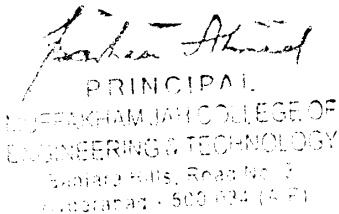 Ahmed
PRINCIPAL
MUFFAKHAM JAH COLLEGE OF
ENGINEERING & TECHNOLOGY
Banjara Hills, Road No. 3
Hyderabad - 500 034 (A.P)